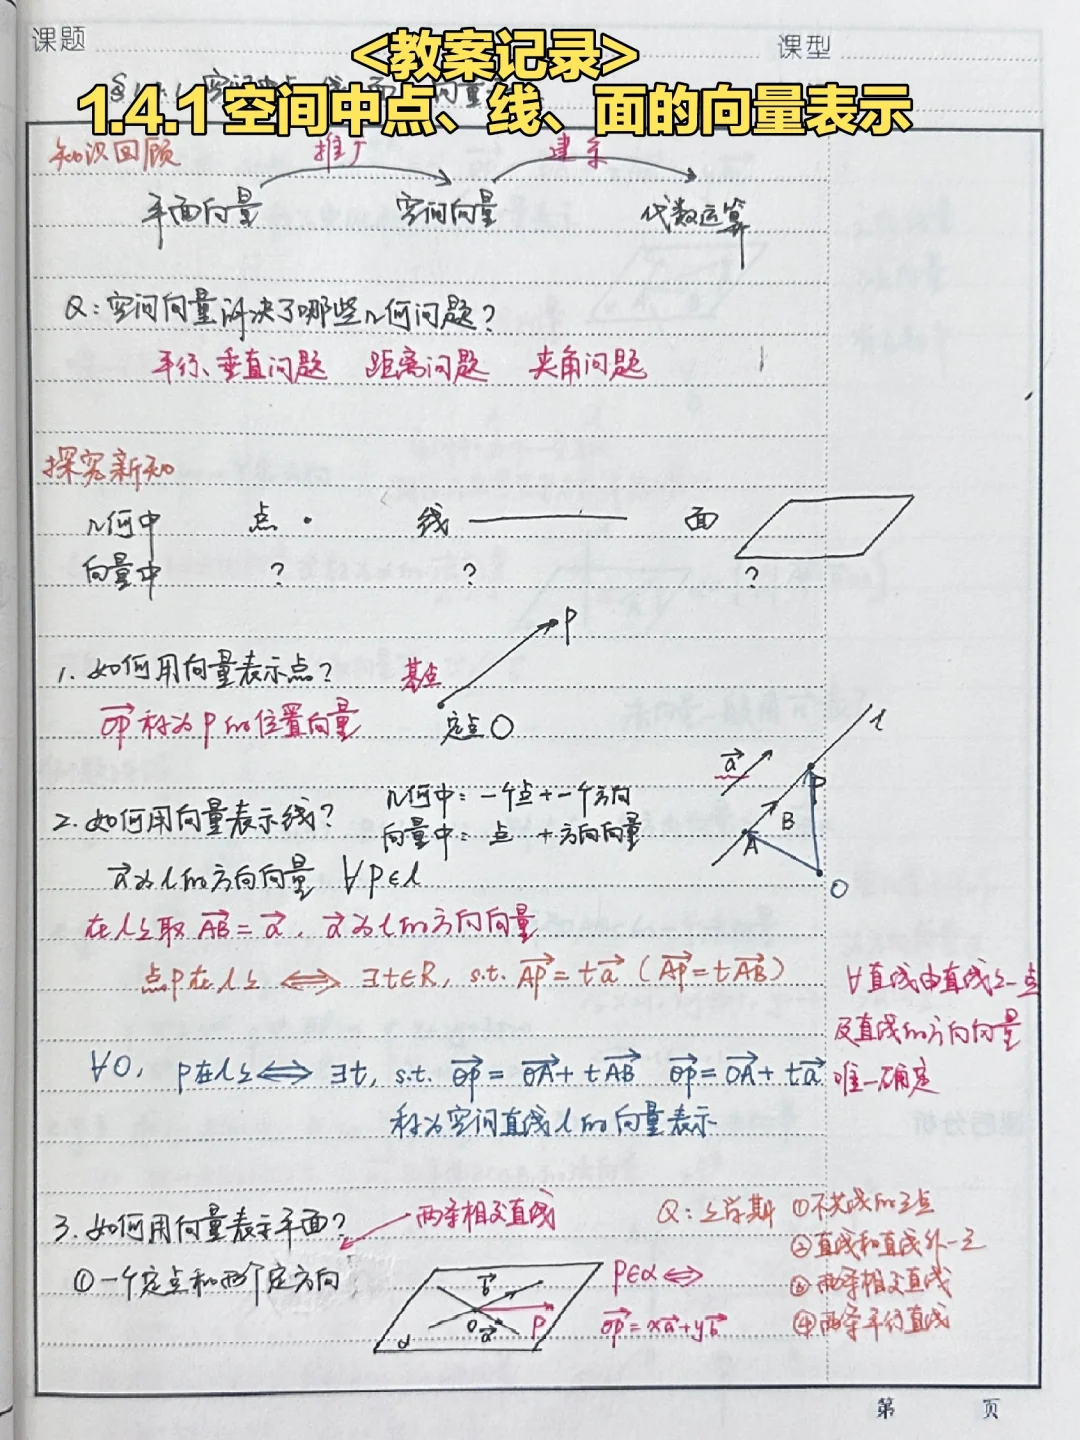 课题
课型
<教案记录>
1.4.1空间中点、线、面的向量表示
知识回顾
推广
建系
平面向量 空间向量 代数运算
Q:空间向量解决了哪些几何问题?
平行、垂直问题 距离问题 夹角问题
探究新知
几何中 点· 线 面
向量中 ? ? ?
P
1. 如何用向量表示点? 基点
OP称为P的位置向量 定点O
l
a
P
B
A
O
2. 如何用向量表示线? 几何中:一个点+一个方向
向量中:点 +方向向量
a为l的方向向量 ∀P∈l
在l上取AB=a, a为l的方向向量
点P在l上 ⟺ ∃t∈R, s.t. AP=ta (AP=tAB)
∀直线由直线上一点
及直线的方向向量
唯一确定
∀O, P在l上⟺ ∃t, s.t. OP=OA+tAB OP=OA+ta
称为空间直线l的向量表示
3. 如何用向量表示平面? 两条相交直线
①一个定点和两个定方向
b
O
a
P
α
P∈α⟺
OP=xa+yb
Q:上学期 ①不共线的三点
②直线和直线外一点
③两条相交直线
④两条平行直线
第 页